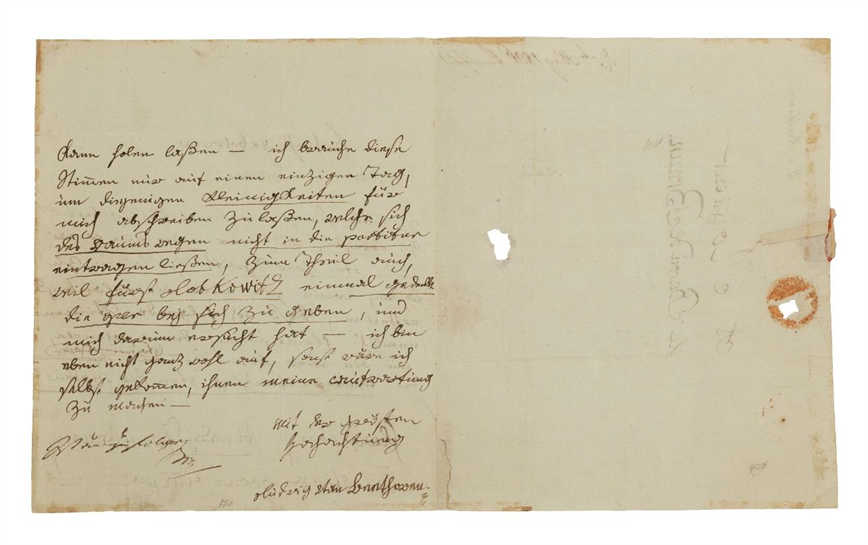 kann holen laßen — ich brauche diese
Stimmen nur auf einen einzigen Tag,
um diejenigen Kleinigkeiten für
mich abschreiben zu laßen, welche sich
des Raums wegen nicht in die partitur
eintragen ließen, zum Theil auch,
weil fürst Lobkowitz einmal gedenkt
die oper bej sich zu geben, und
mich darum ersucht hat — ich bin
eben nicht ganz wohl auf, sonst wäre ich
selbst gekommen, ihnen meine aufwartung
zu machen —
mit der größten
Hochachtung
Ludwig van Beethoven